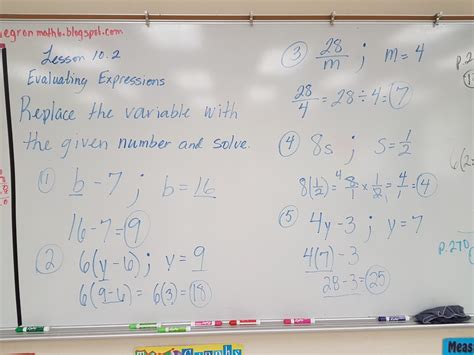 egron math6.blogspot.com
Lesson 10.2
Evaluating Expressions
Replace the variable with
the given number and solve.
① b - 7 ; b = 16
16 - 7 = 9
② 6(y - 6) ; y = 9
6(9 - 6) = 6(3) = 18
③ 28/m ; m = 4
28/4 = 28 ÷ 4 = 7
④ 8s ; s = 1/2
8(1/2) = 8/1 × 1/2 = 4/1 = 4
⑤ 4y - 3 ; y = 7
4(7) - 3
28 - 3 = 25
p.2
6(2
p.270
Meas